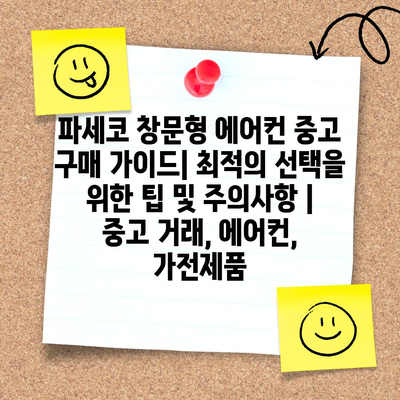 파세코 창문형 에어컨 중고
구매 가이드| 최적의 선택을
위한 팁 및 주의사항 |
중고 거래, 에어컨,
가전제품